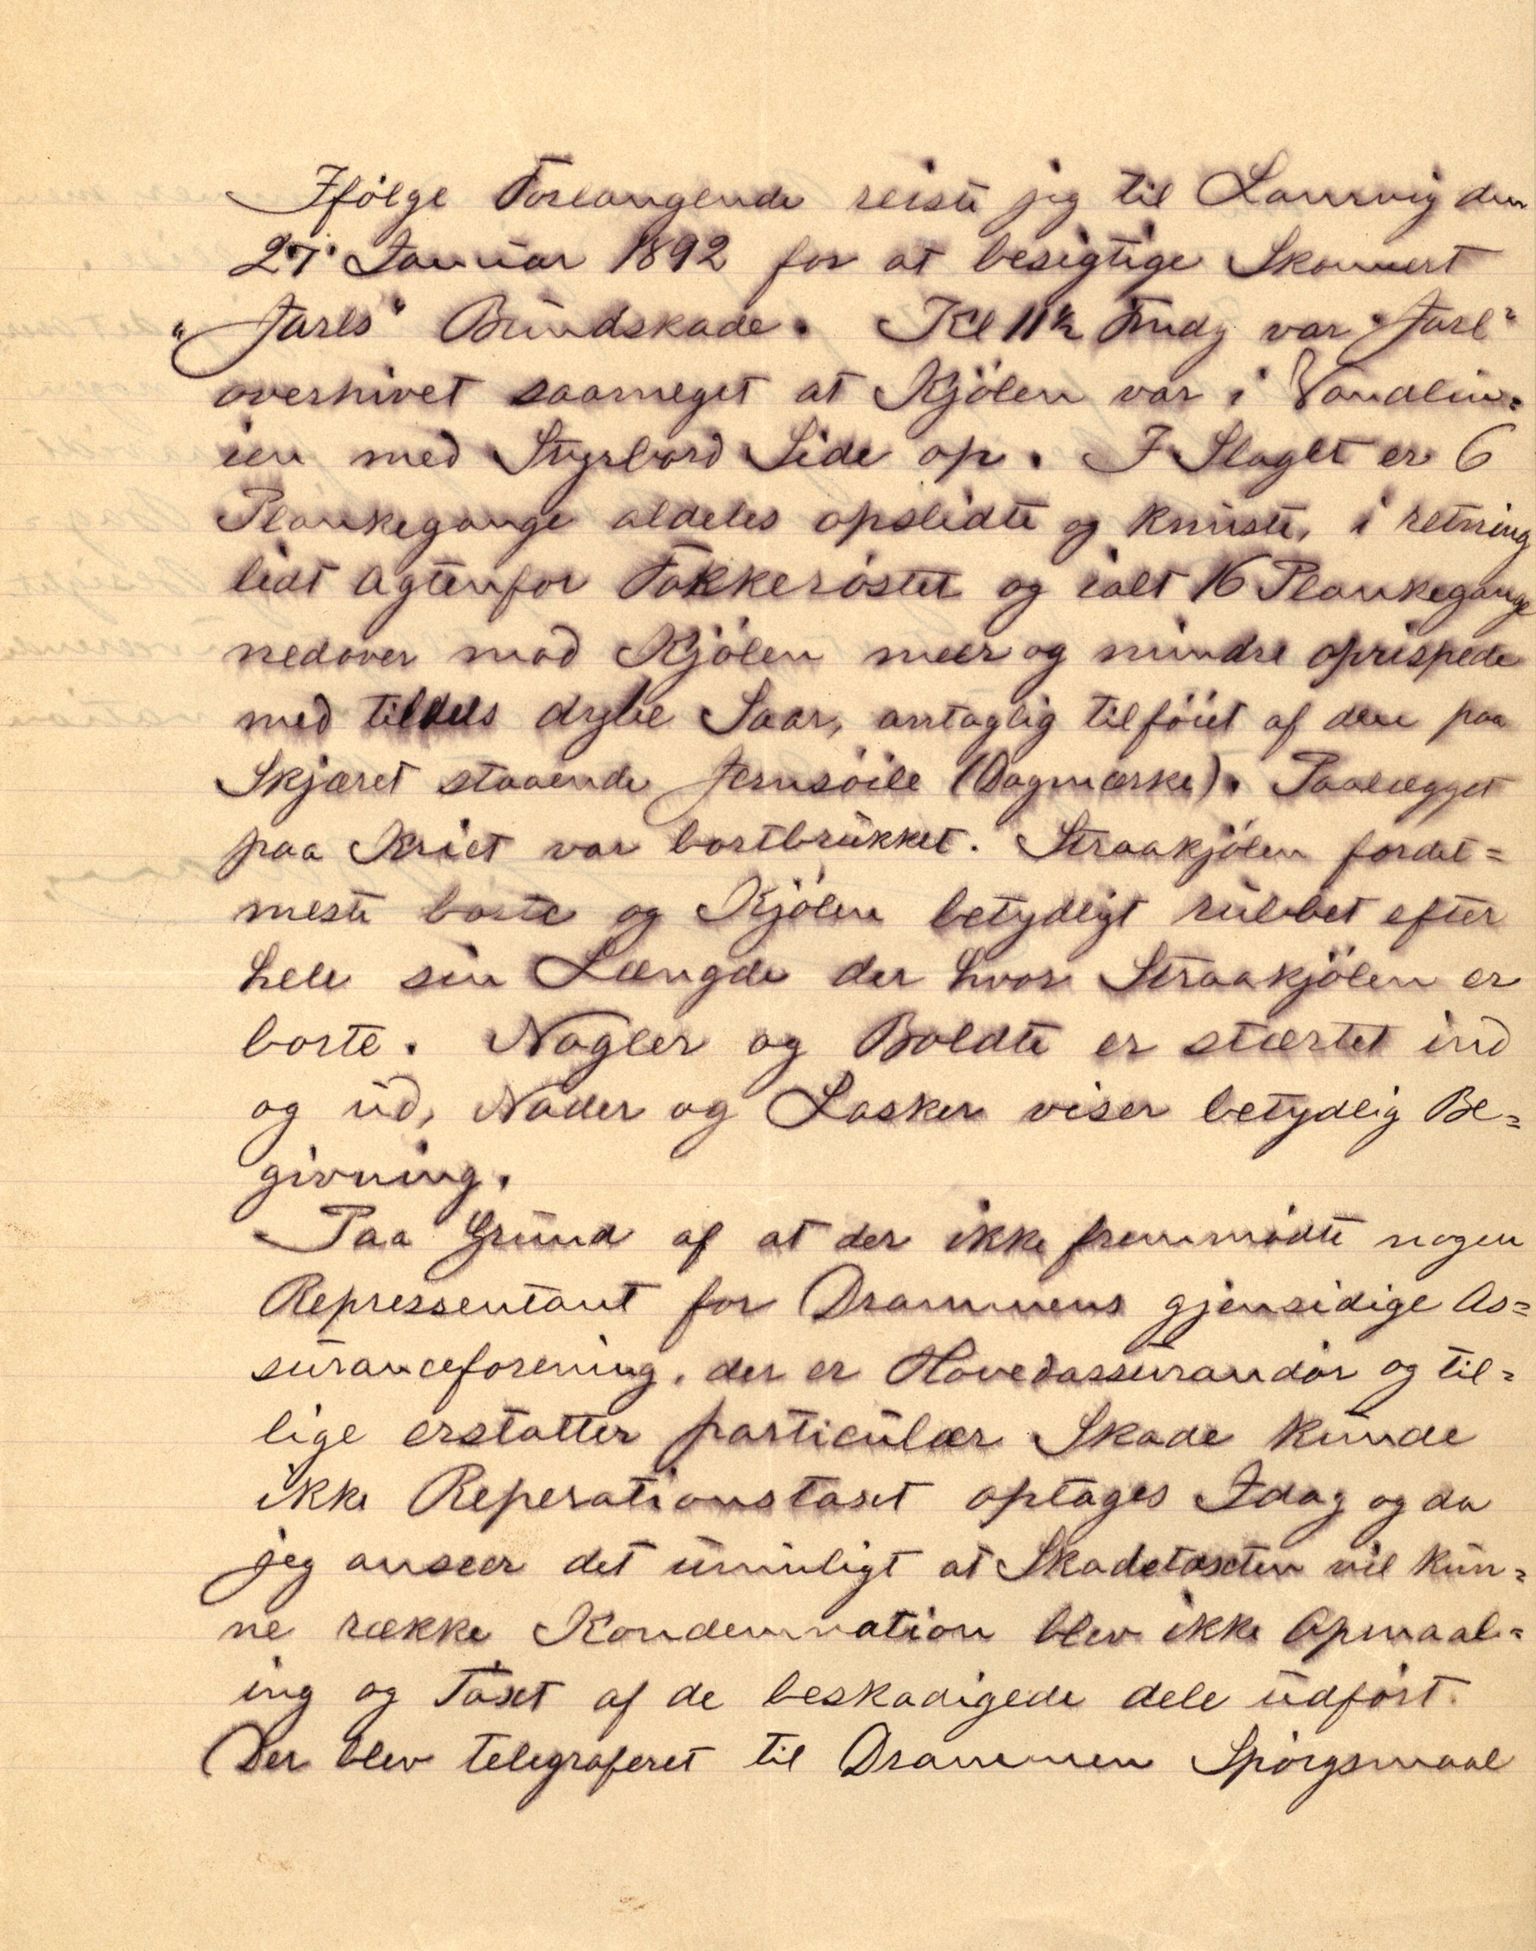 Ifölge Forlangende reiste jeg til Laurvig den
27' Januar 1892 for at besigtige Skonnert
"Jarls" Bundskade. Kl 11½ Fmdg var "Jarl"
overhivet saameget at Kjölen var i Vandlin=
ien med Styrbord Side op. I Slaget er 6
Plankegange aldeles opslidte og knuste, i retning
lidt agtenfor Fokkeröstet og ialt 16 Plankegange
nedover mod Kjölen meer og mindre oprispede
med tildels dybe Saar, antaglig tilföiet af den paa
Skjæret staaende Jernsöile (Dagmærke). Paalægget
paa Kniet var bortbrükket. Straakjölen fordet=
meste borte og Kjölen betydeligt rübbet efter
hele sin Længde der hvor Straakjölen er
borte. Nagler og Boldte er stærtet ind
og üd, Nader og Lasker viser betydlig Be=
givning.
Paa Gründ af at der ikke fremmödte nogen
Repressentant for Drammens gjensidige As=
suranceforening, der er Hovedassurandör og til=
lige erstatter particülær Skade künde
ikke Reperationstaxt optages Idag og da
jeg anseer det ümüligt at Skadetaxten vil kün=
ne række Kondemnation blev ikke Opmaal=
ing og Taxt af de beskadigede dele üdfört.
Der blev telegraferet til Drammen Spörgsmaal